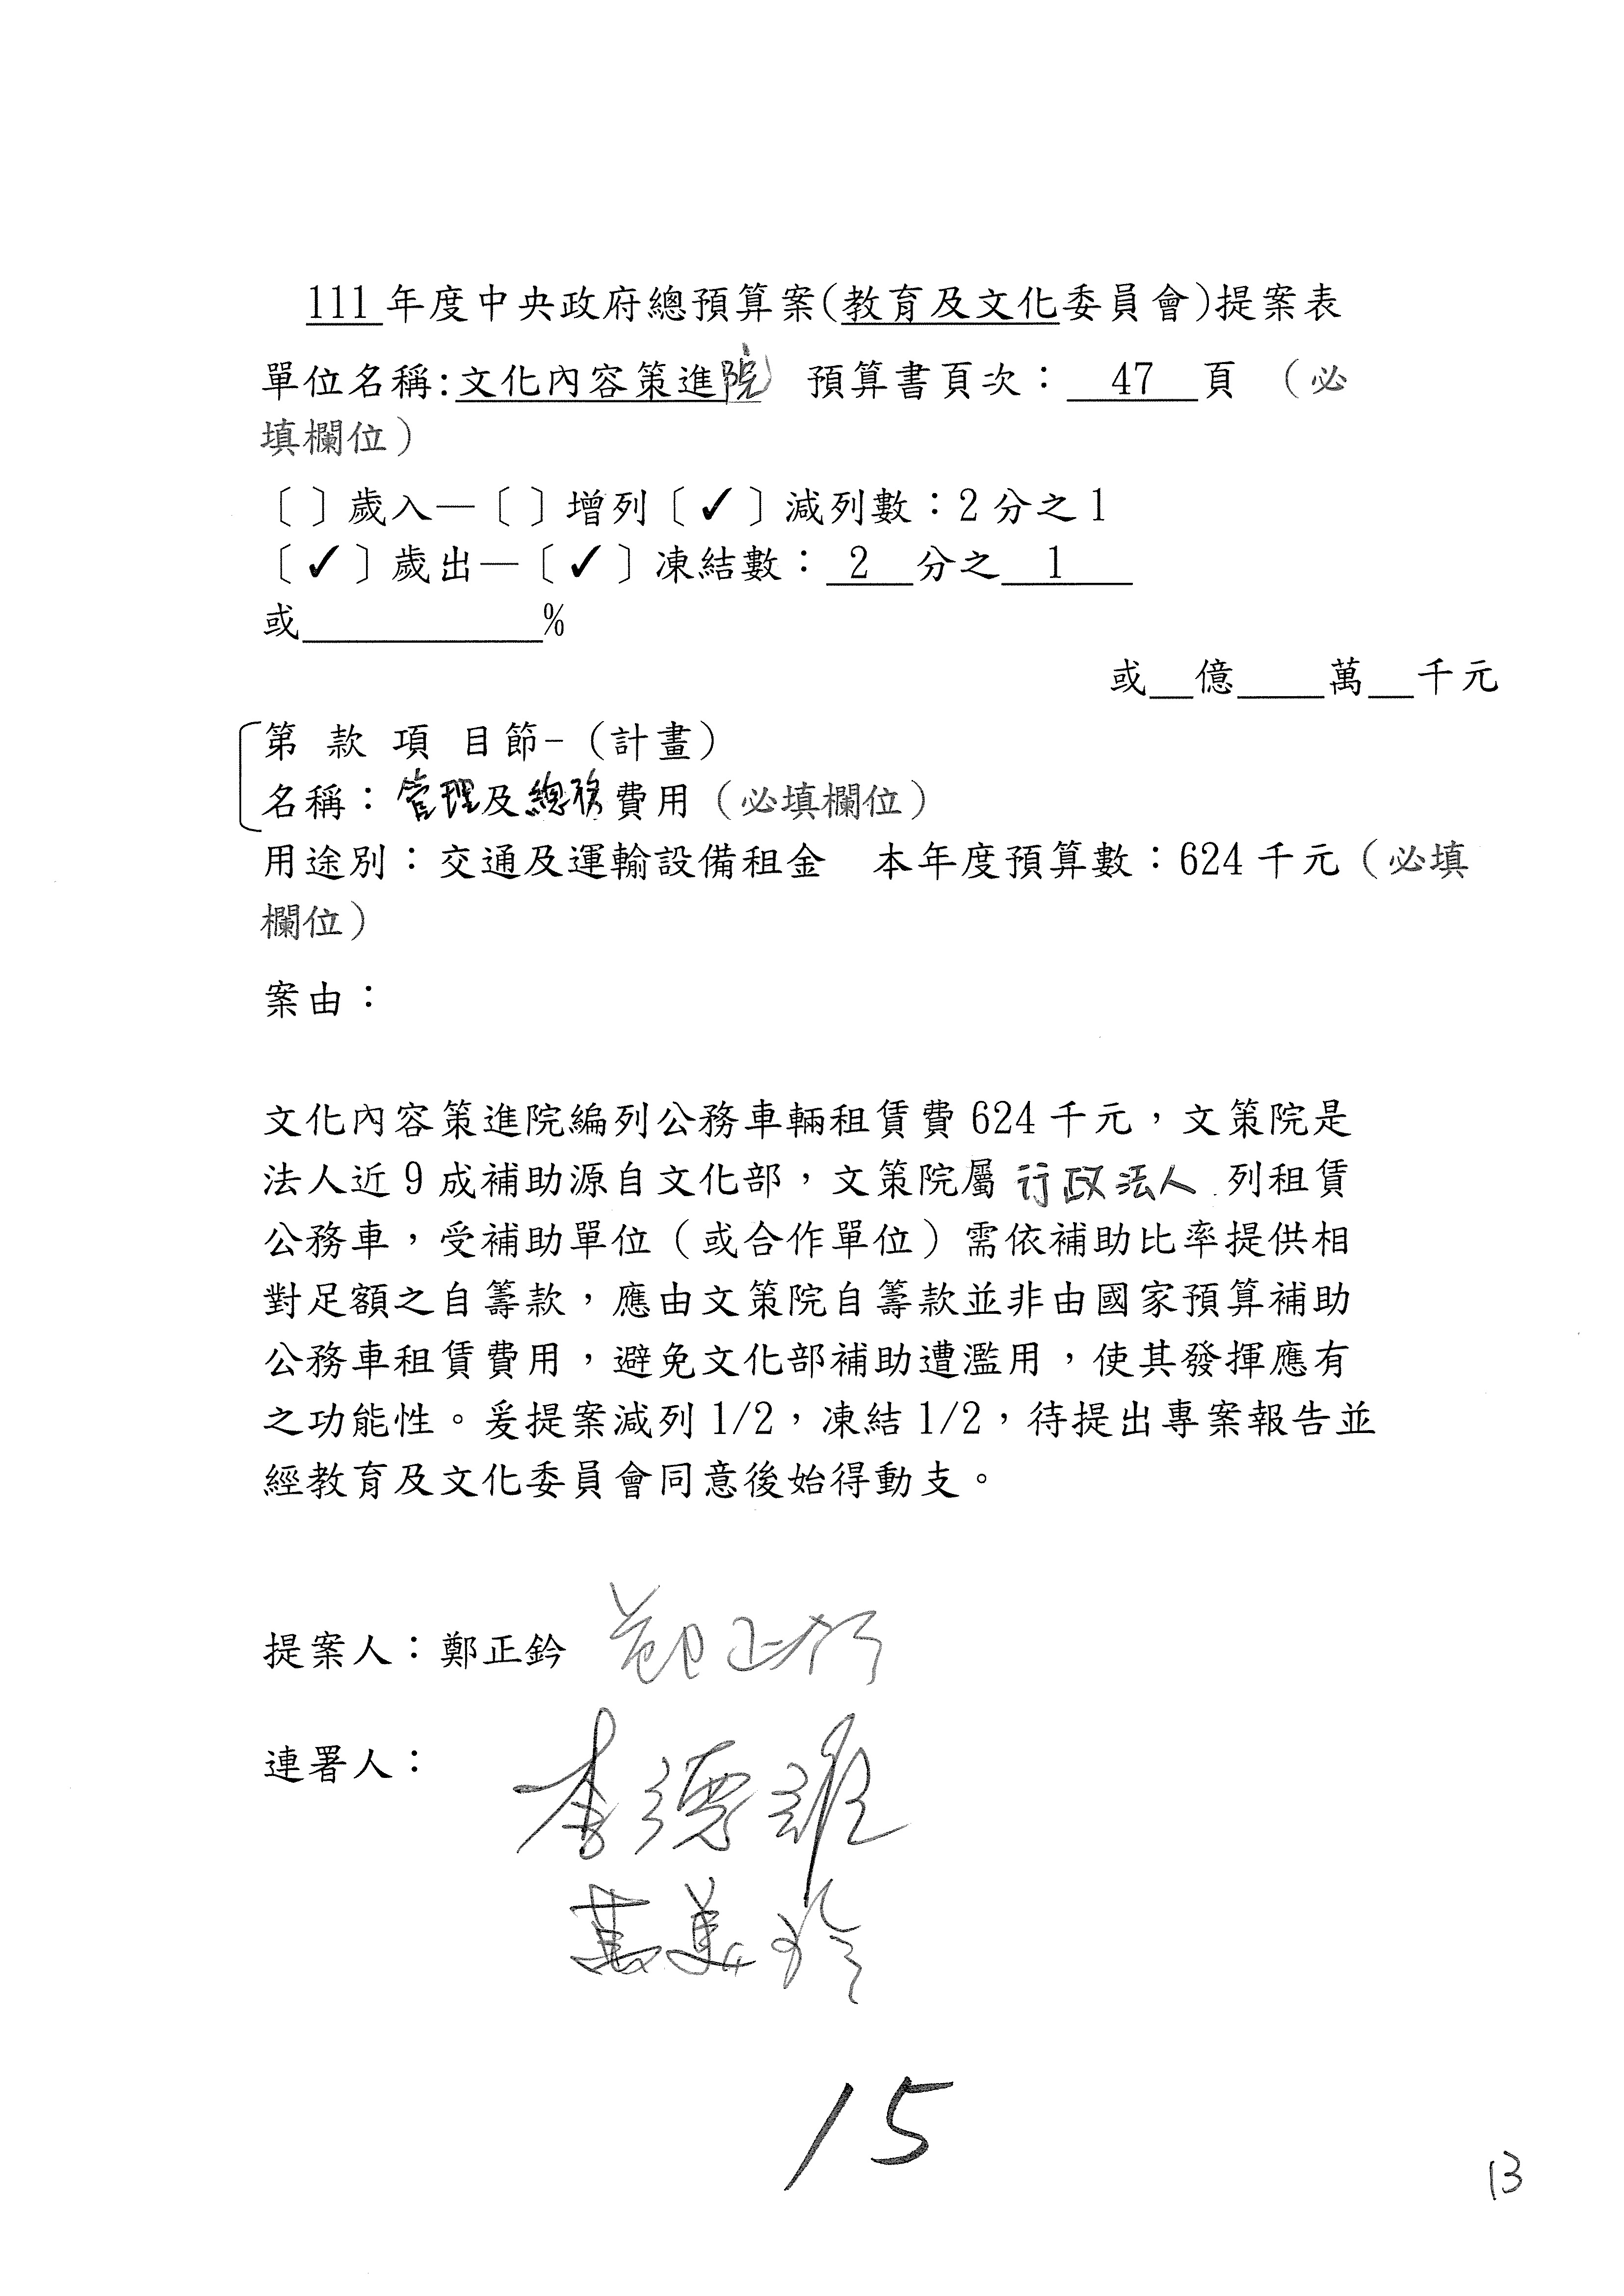 111年度中央政府總預算案(教育及文化委員會)提案表
單位名稱:文化內容策進院 預算書頁次： 47 頁 （必
填欄位）
〔 〕歲入—〔 〕增列〔✓〕減列數：2分之1
〔✓〕歲出—〔✓〕凍結數： 2 分之 1
或＿＿＿＿＿＿%
或＿億＿＿萬＿千元
第 款 項 目節-（計畫）
名稱：管理及總務費用（必填欄位）
用途別：交通及運輸設備租金 本年度預算數：624千元（必填
欄位）
案由：
文化內容策進院編列公務車輛租賃費624千元，文策院是
法人近9成補助源自文化部，文策院屬行政法人列租賃
公務車，受補助單位（或合作單位）需依補助比率提供相
對足額之自籌款，應由文策院自籌款並非由國家預算補助
公務車租賃費用，避免文化部補助遭濫用，使其發揮應有
之功能性。爰提案減列1/2，凍結1/2，待提出專案報告並
經教育及文化委員會同意後始得動支。
提案人：鄭正鈐 鄭正鈐
連署人：
李德維
萬美玲
15
13